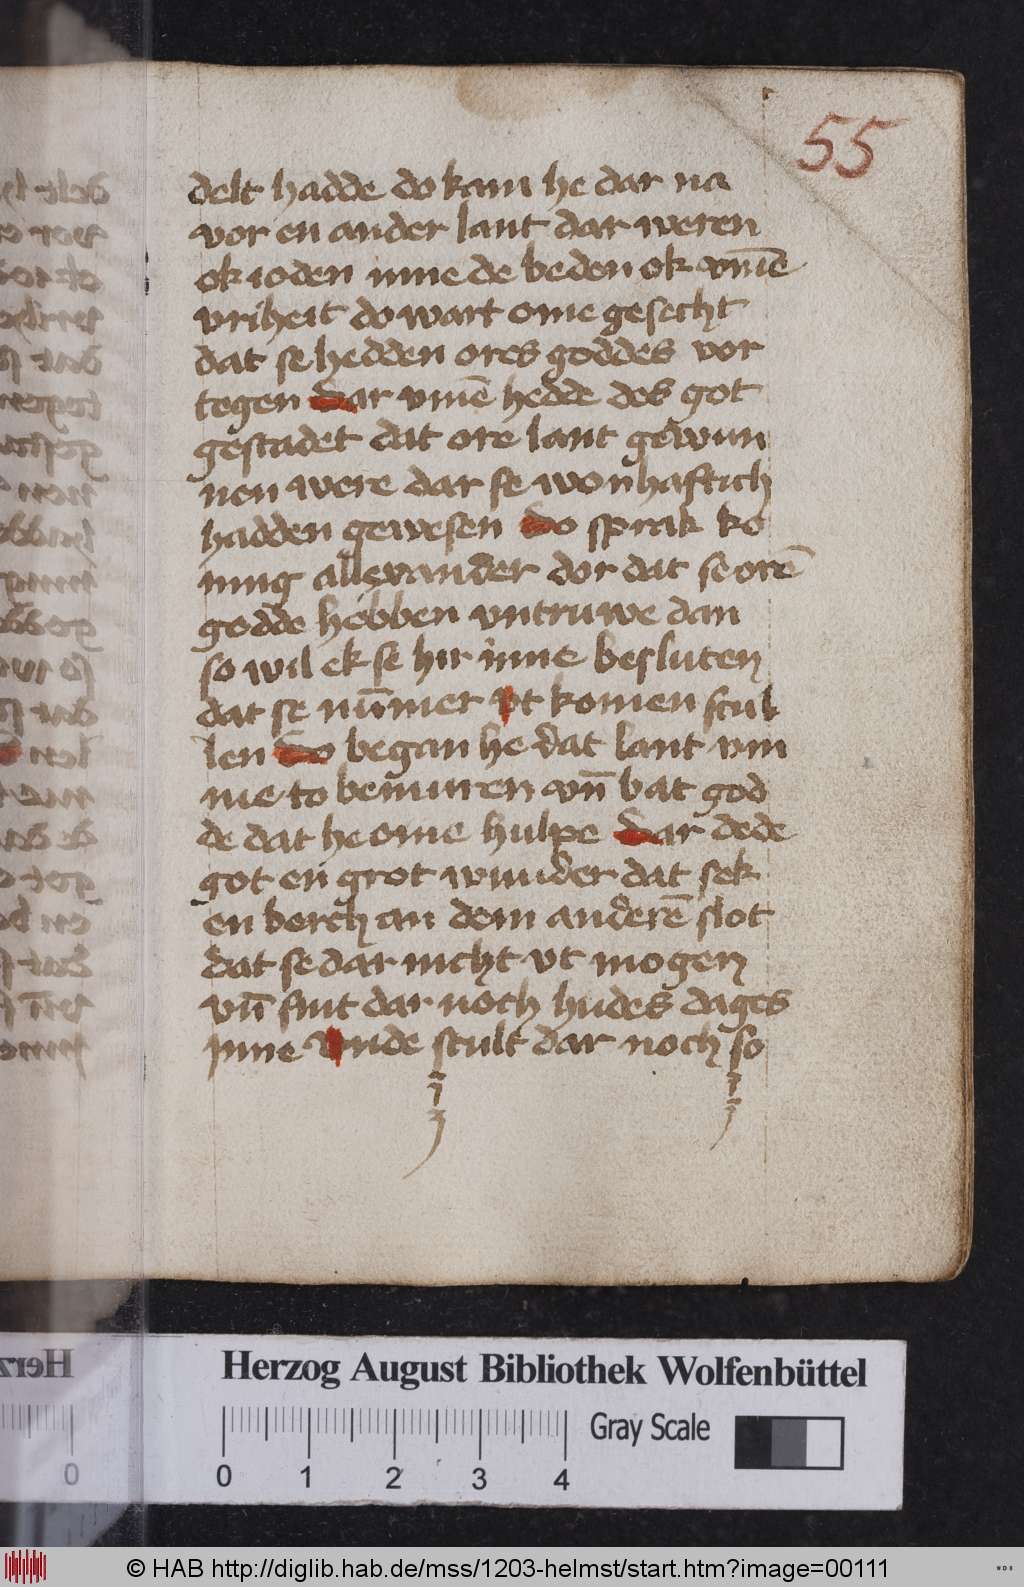 55
delt hadde do kam he dar na
vor en ander lant dar weren
ok ioden inne de beden ok vm̄e
vriheit do wart ome gesecht
dat se hedden ores goddes vor
tegen dar vm̄e hedde des got
gestadet dat ore lant gewun
nen were dar se wonhaftich
hadden gewesen do sprak ko
ning allexander dor dat se orē
godde hebben vntruwe dan
so wil ek se hir inne besluten
dat se nūmer vt komen scul
len do began he dat lant vm
me to bemuren vn̄ bat god
de dat he ome hulpe dar dede
got en grot wunder dat sek
en berch an dem anderē slot
dat se dar nicht vt mogen
vn̄ sint dar noch hudes dages
inne vnde scult dar noch so
Herzog August Bibliothek Wolfenbüttel
Gray Scale
0 1 2 3 4
© HAB http://diglib.hab.de/mss/1203-helmst/start.htm?image=00111